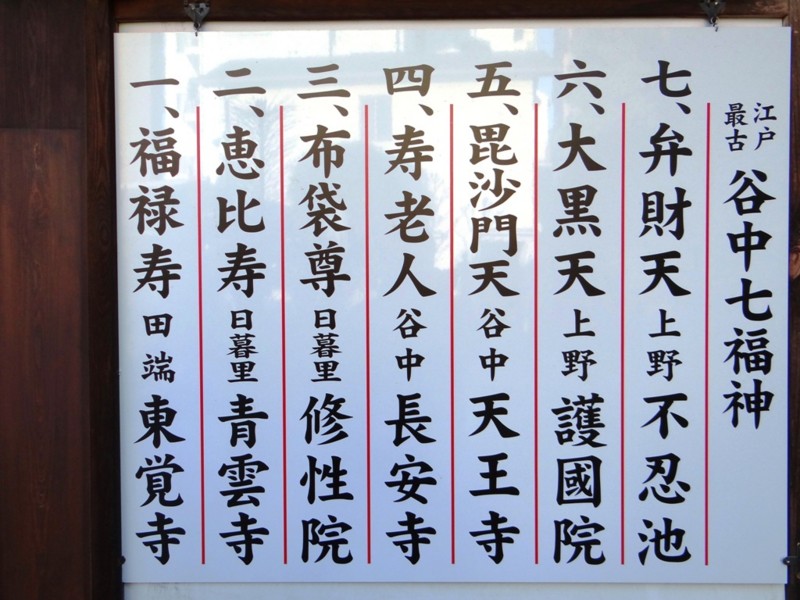 江戸最古 谷中七福神
七、弁財天 上野 不忍池
六、大黒天 上野 護國院
五、毘沙門天 谷中 天王寺
四、寿老人 谷中 長安寺
三、布袋尊 日暮里 修性院
二、恵比寿 日暮里 青雲寺
一、福禄寿 田端 東覚寺